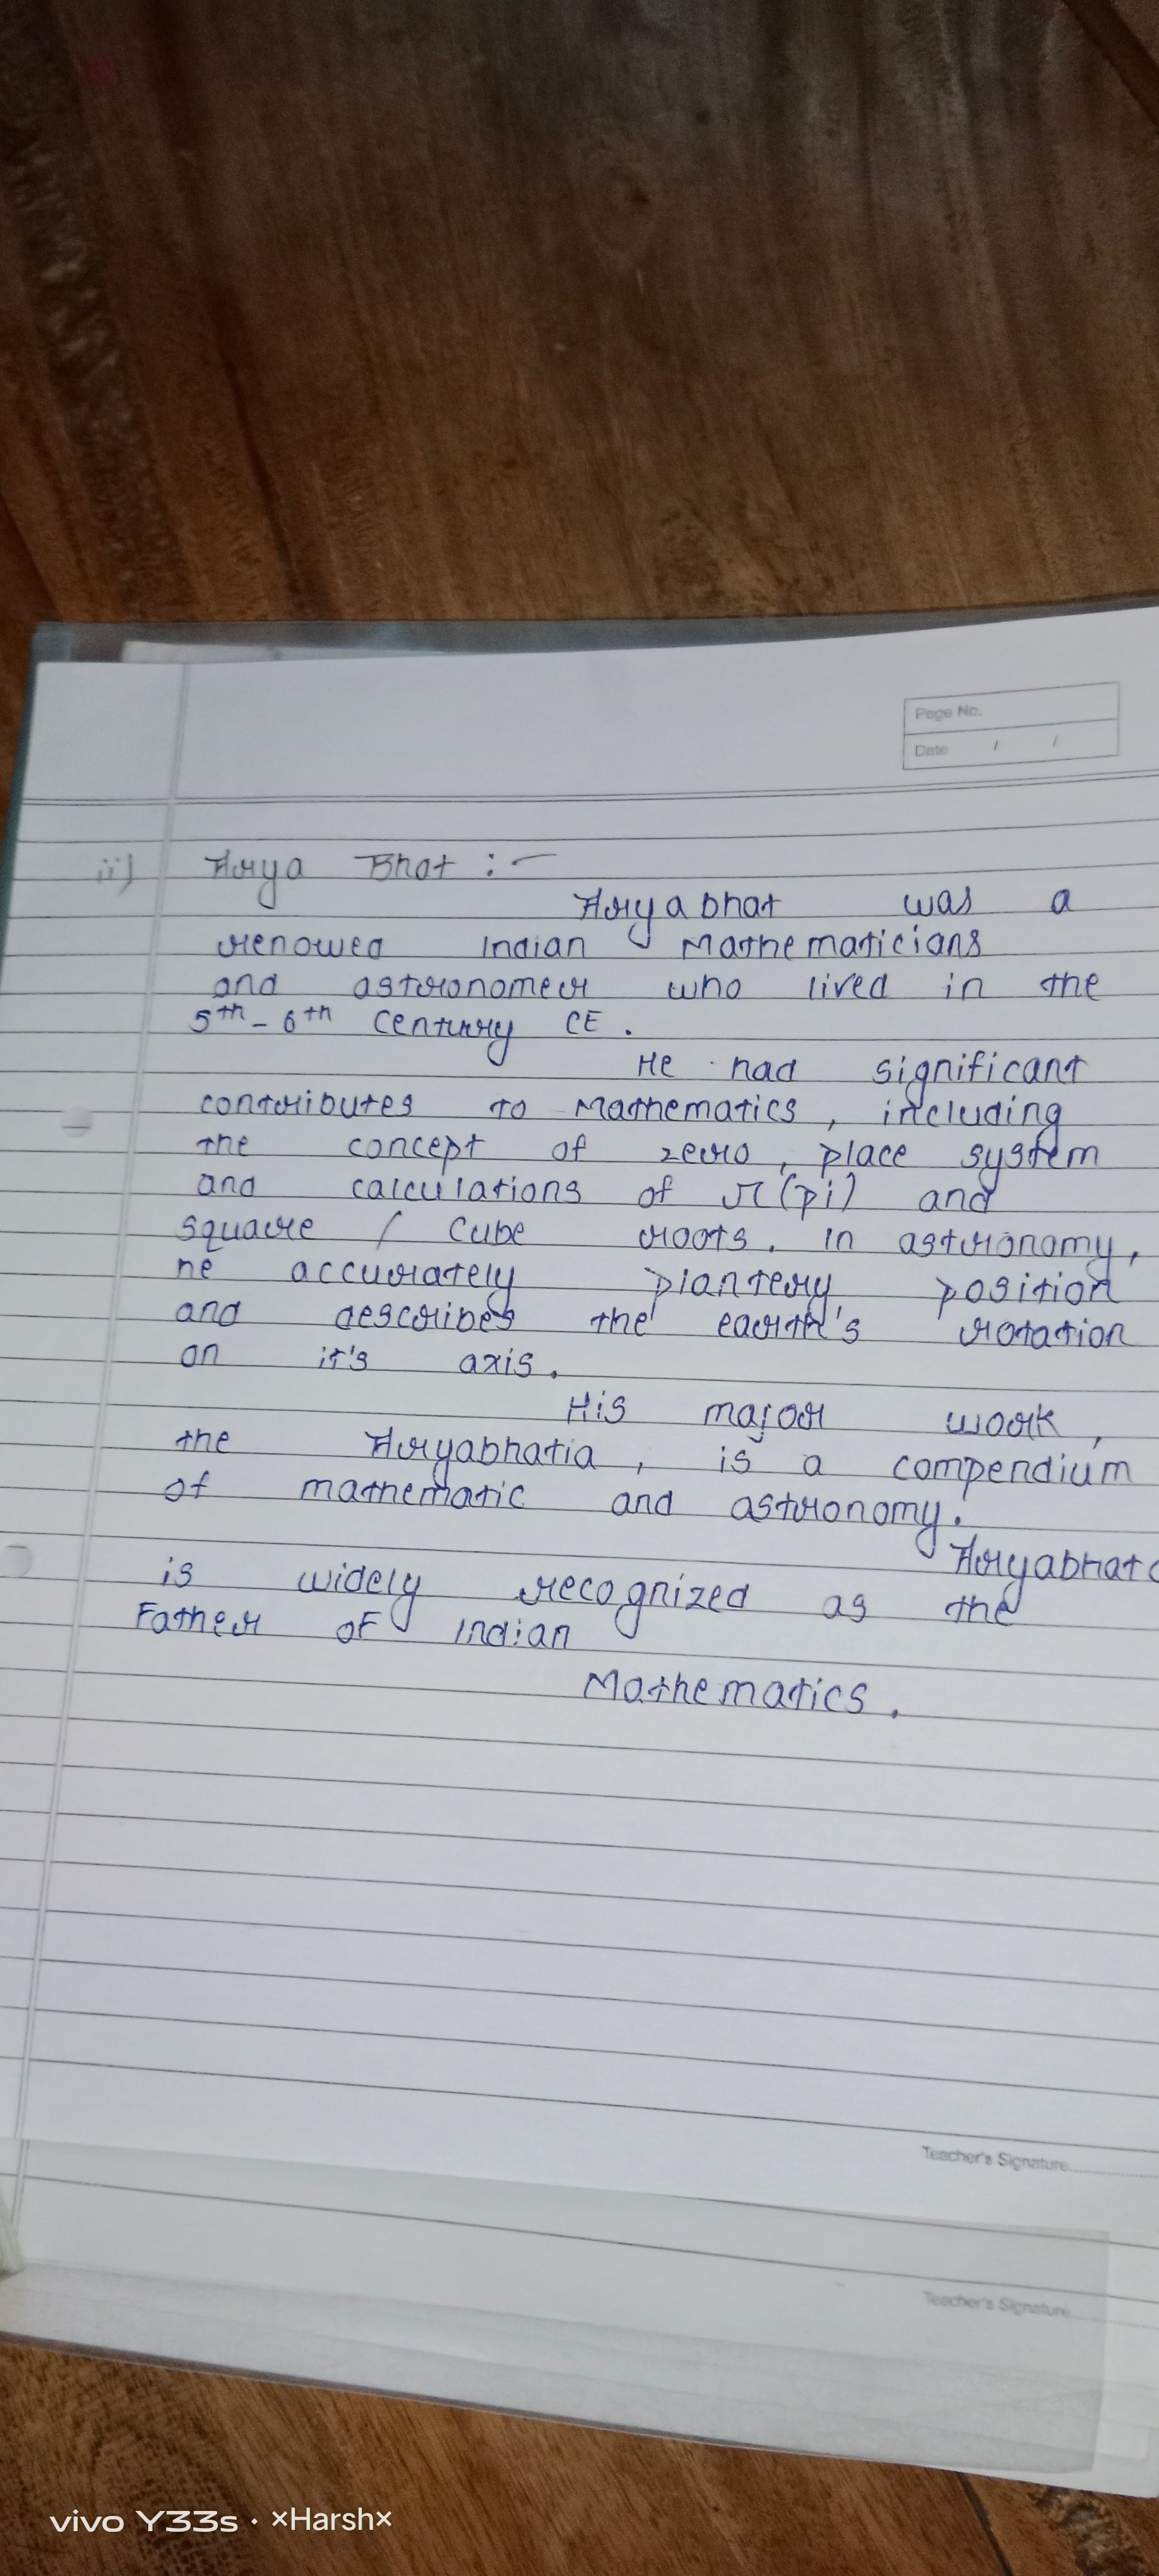 Page No.
Date / /
ii) Arya Bhat :-
Aryabhat was a
renowed Indian Mathematicians
and astronomer who lived in the
5th - 6th century CE.
He had significant
contributes to Mathematics, including
the concept of zero, place system
and calculations of π (pi) and
square / Cube roots. In astronomy,
he accurately plantery position
and describes the earth's rotation
on it's axis.
His major work,
the Aryabhatia, is a compendium
of mathematic and astronomy.
Aryabhata
is widely recognized as the
Father of Indian
Mathematics.
Teacher's Signature
Teacher's Signature
vivo Y33s · ×Harsh×